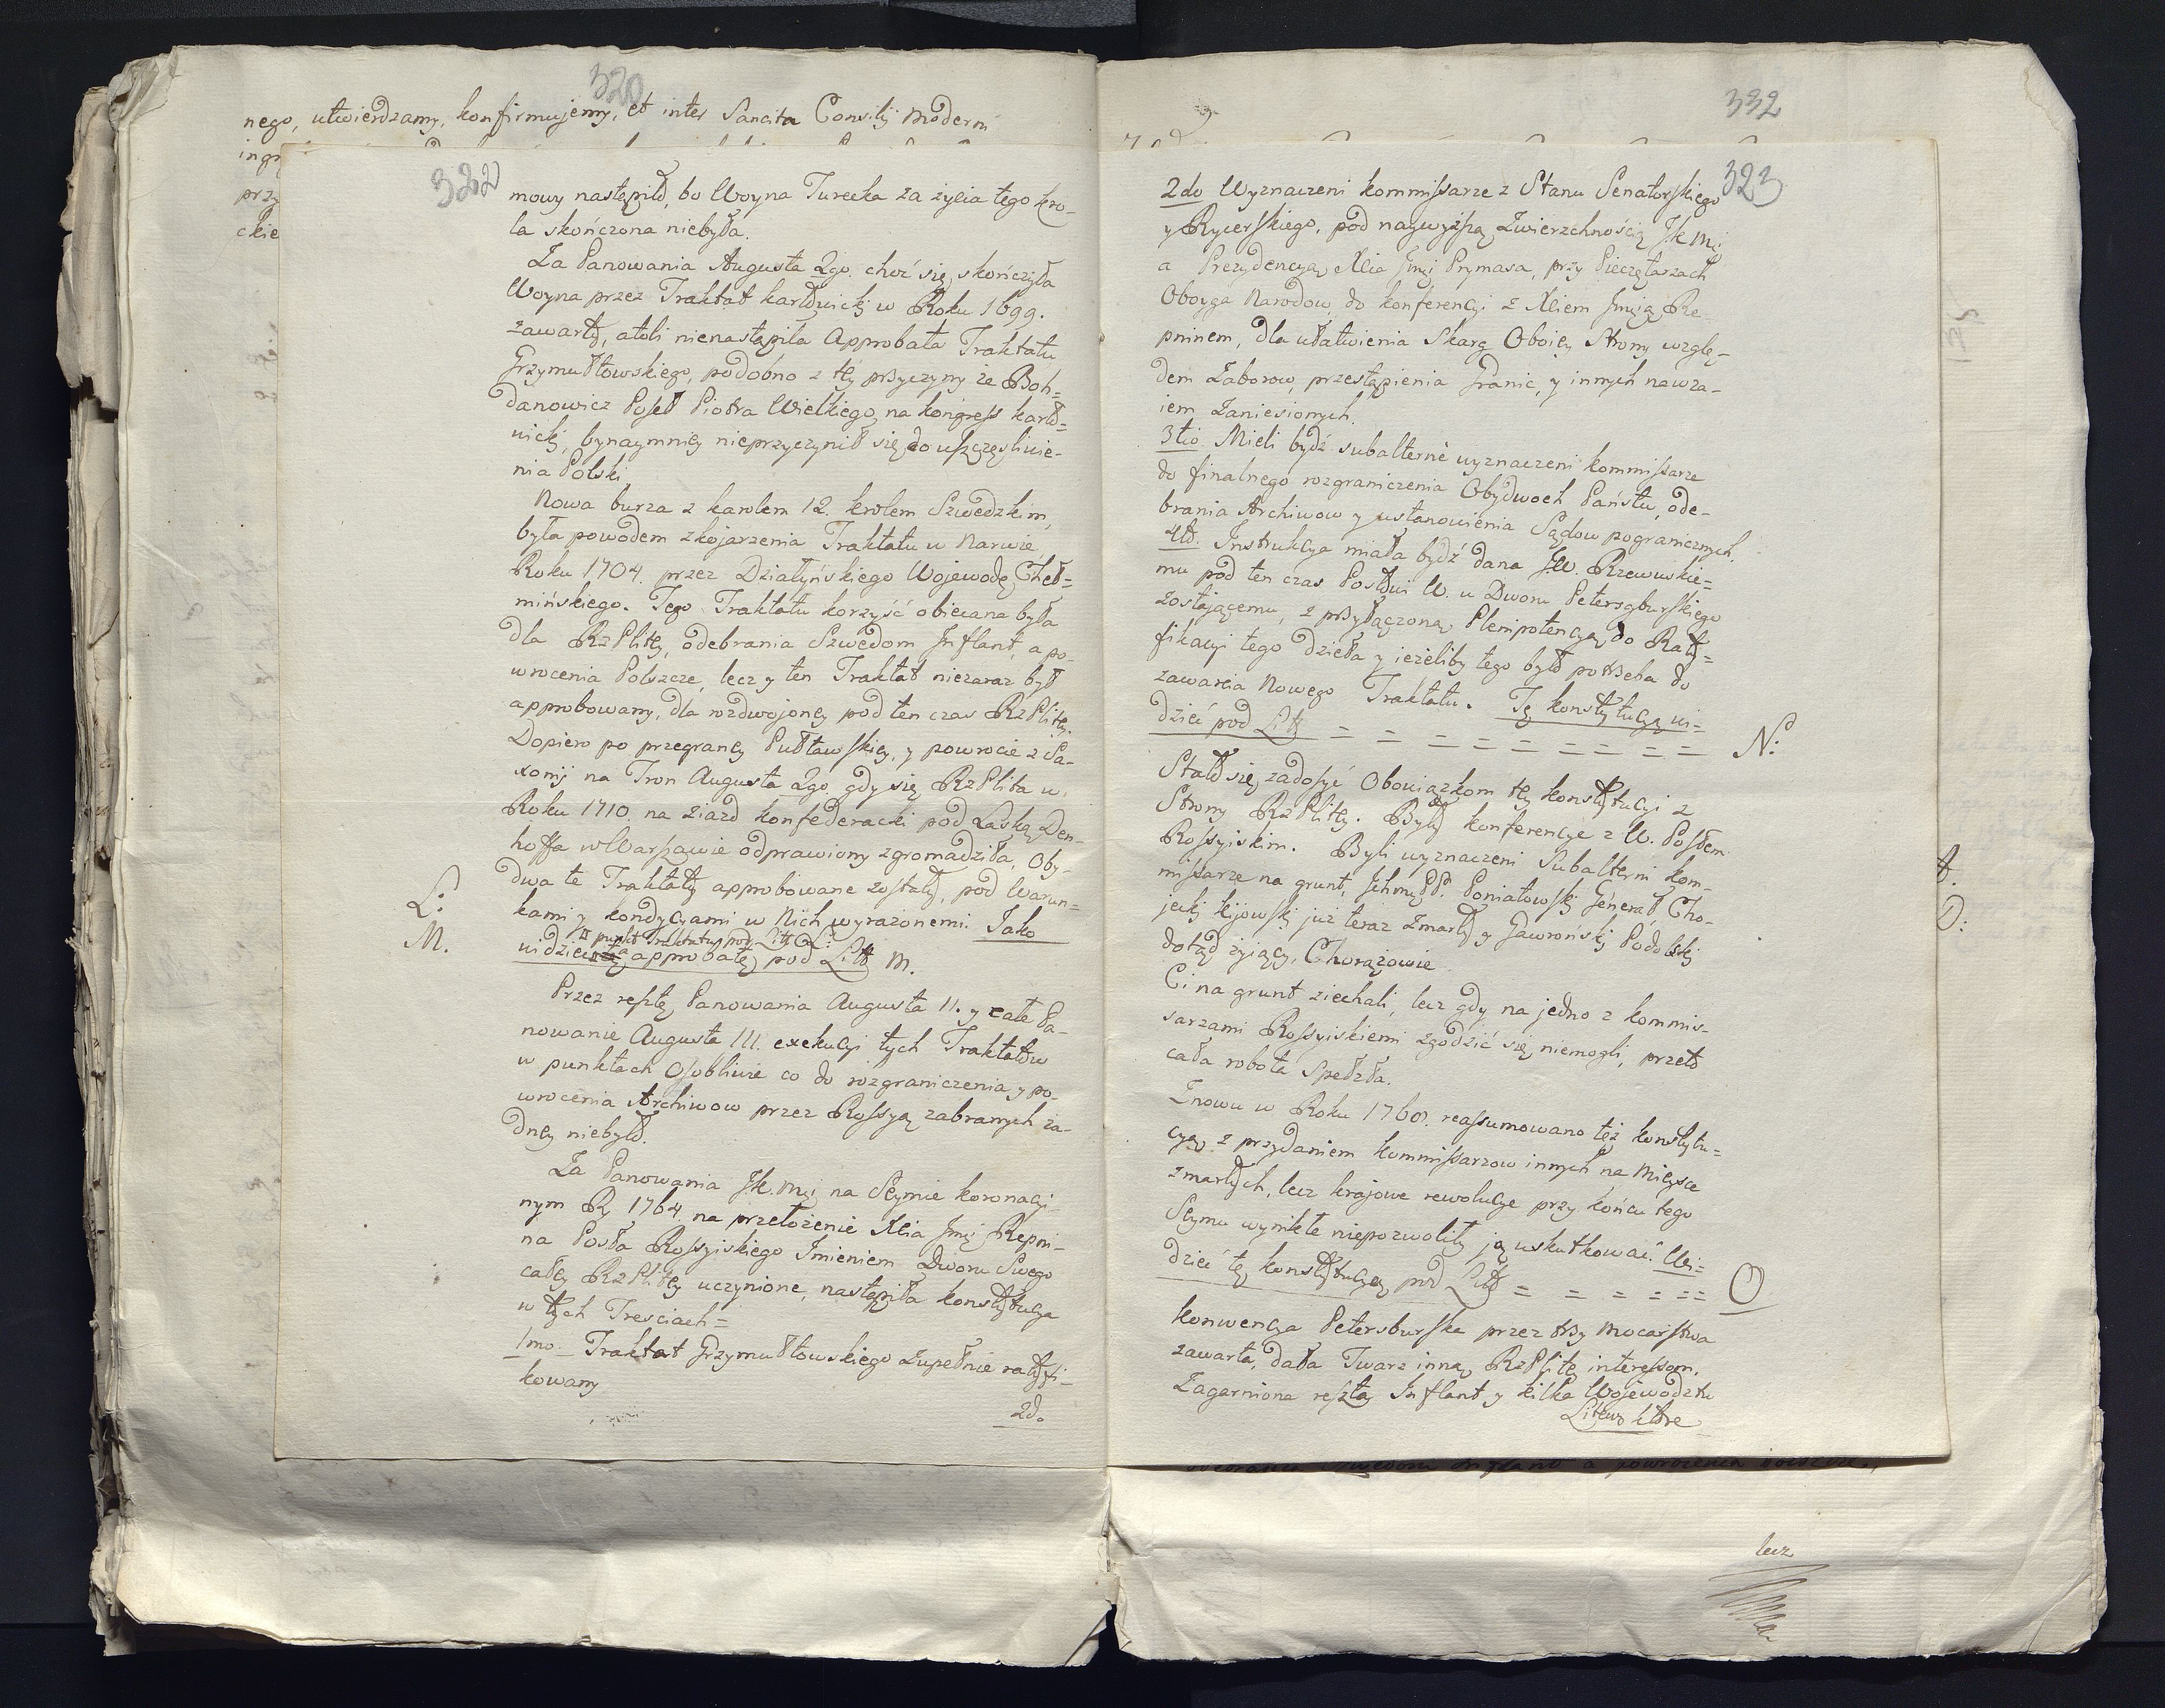 320
nego, utwierdzamy, konfirmujemy, et inter Sancita Consilij moderni
ingr
przy
ckie
322
mowy nastąpiło, bo Woyna Turecka za życia tego kro-
la skończona niebyła.
Za Panowania Augusta 2go. choć się skończyła
Woyna przez Traktat karłowicki w Roku 1699.
zawarty, atoli nienastąpiła Approbata Traktatu
Grzymułtowskiego, podobno z tey przyczyny że Boh=
danowicz Poseł Piotra Wielkiego na kongress karło=
wicki, bynaymniey nieprzyczynił się do uszczęśliwie-
nia Polski.
Nowa burza z karolem 12. krolem Szwedzkim,
była powodem zkojarzenia Traktatu w Narwie,
Roku 1704. przez Działyńskiego Wojewodę Cheł=
mińskiego. Tego Traktatu korzyść obiecana była
dla RzPlitey, odebrania Szwedom Inflant, a po-
wrocenia Polszcze, lecz y ten Traktat niezaraz był
approbowany, dla rozdwojoney pod ten czas RzPlitey.
Dopiero po przegraney Pułtawskiey, y powrocie z Sa-
xonij na Tron Augusta 2go. gdy się RzPlita w
Roku 1710. na ziazd konfederacki pod Laską Den-
hoffa w Warszawie odprawiony zgromadziła, Oby-
dwa te Traktaty approbowane zostały, pod Warun=
kami y kondycyami w Nich wyrażonemi. Jako
L:
punkt Traktatu pod Litt L.
M.
widzieć approbatę pod Litt M.
Przez resztę Panowania Augusta II. y całe Pa-
nowanie Augusta III. exekucyi tych Traktatow
w punktach Osobliwie co do rozgraniczenia y po-
wrocenia Archiwow przez Rossyą zabranych ża-
dney niebyło.
Za Panowania Jk. Mci na Seymie koronacyi-
nym R. 1764 na przełożenie Xcia Jmci Repni-
na Posła Rossyiskiego Imieniem Dworu Swego
całey RzPlitey uczynione, nastąpiła konstytucya
w tych Tresciach=
1mo. Traktat Grzymułtowskiego zupełnie ratyfi-
kowany
2do
332
323
2do Wyznaczeni kommissarze z Stanu Senatorskiego
y Rycerskiego, pod naywyższą Zwierzchnością Jk Mci
a Prezydencyą Xcia Jmci Prymasa, przy Pieczętarzach
Oboyga Narodow, do konferencyi z Xciem Jmcią Re-
pninem, dla ułatwienia Skarg Oboiey Strony wzglę-
dem Zaborow, przestąpienia Granic, y innych nawza-
iem Zaniesionych.
3tio. Mieli bydź subalterne wyznaczeni kommissarze
do finalnego rozgraniczenia Obydwoch Państw, ode-
brania Archiwow y ustanowienia Sądow pogranicznych.
4to. Instrukcya miała bydź dana JW. Rzewuskie=
mu pod ten czas Posłowi W. u Dworu Petersgburskiego
zostającemu, z przyłączoną Plenipotencyą do Raty=
fikacyi tego dzieła y ieżeliby tego było potrzeba do
zawarcia Nowego Traktatu. Tę konstytucyą wi=
dzieć pod Litt = = = = = = = = = N:
Stało się zadosyć Obowiązkom tey konstytucyi z
Strony RzPlitey. Były konferencye z W. Posłem
Rossyiskim. Byli wyznaczeni Subalterni kom-
missarze na grunt, Ichmć PP. Poniatowski Generał, Cho-
jecki kijowski już teraz zmarły y Gawroński Podolski
dotąd żyjący, Chorążowie.
Ci na grunt ziechali, lecz gdy na jedno z kommis-
sarzami Rossyiskiemi zgodzić się niemogli, przeto
cała robota spełzła.
Znowu w Roku 1768. reassumowano też konstytu=
cyą z przydaniem kommissarzow innych na Mieysce
zmarłych, lecz krajowe rewolucye przy końcu tego
Seymu wynikłe niepozwoliły ją uskutkować. Wi=
dzieć tę konstytucyą pod Litt = = = = == O
konwencya Petersburska przez trzy Mocarstwa
zawarta, dała Twarz inną RzPlitey interessom.
Zagarniona reszta Inflant y kilka Wojewodztw
Litews które
D:
odebrania Szwedom Inflant a powrocenia Polszcze,
lecz